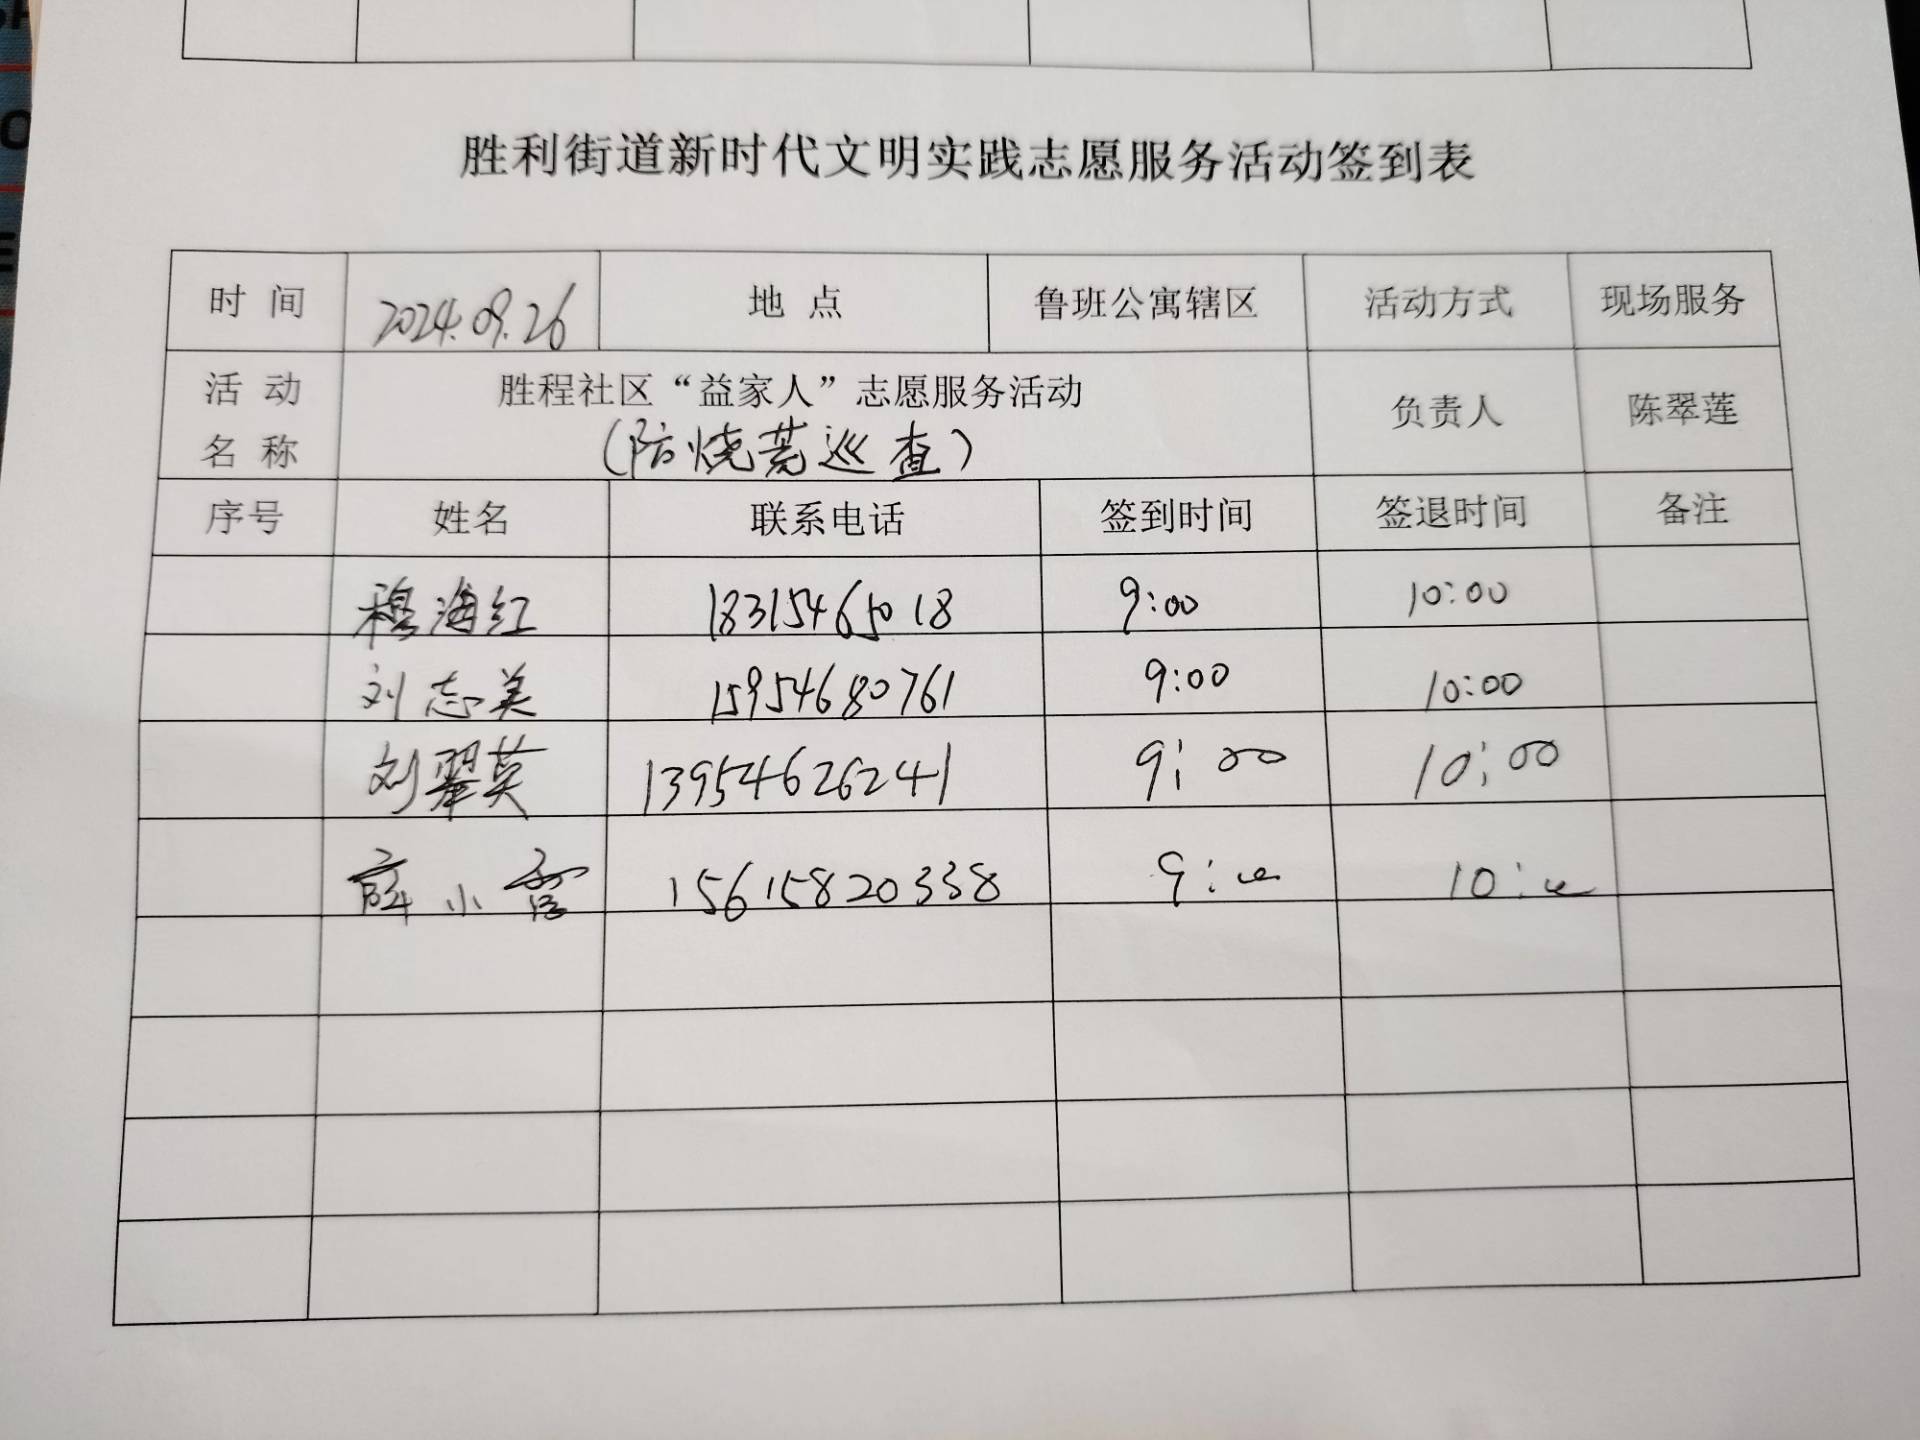 胜利街道新时代文明实践志愿服务活动签到表
时 间 2024.09.26 地 点 鲁班公寓辖区 活动方式 现场服务
活 动 名 称 胜程社区“益家人”志愿服务活动 负责人 陈翠莲
(防烧荒巡查)
序号 姓名 联系电话 签到时间 签退时间 备注
穆海红 18315465018 9:00 10:00
刘志美 15954680761 9:00 10:00
刘翠英 13954626241 9:00 10:00
薛小 15615820338 9:00 10:00